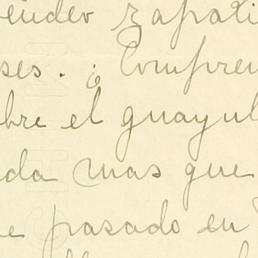 ender zapati
ses. ¿ Compren
bre el guayul
da mas que
e pasado en